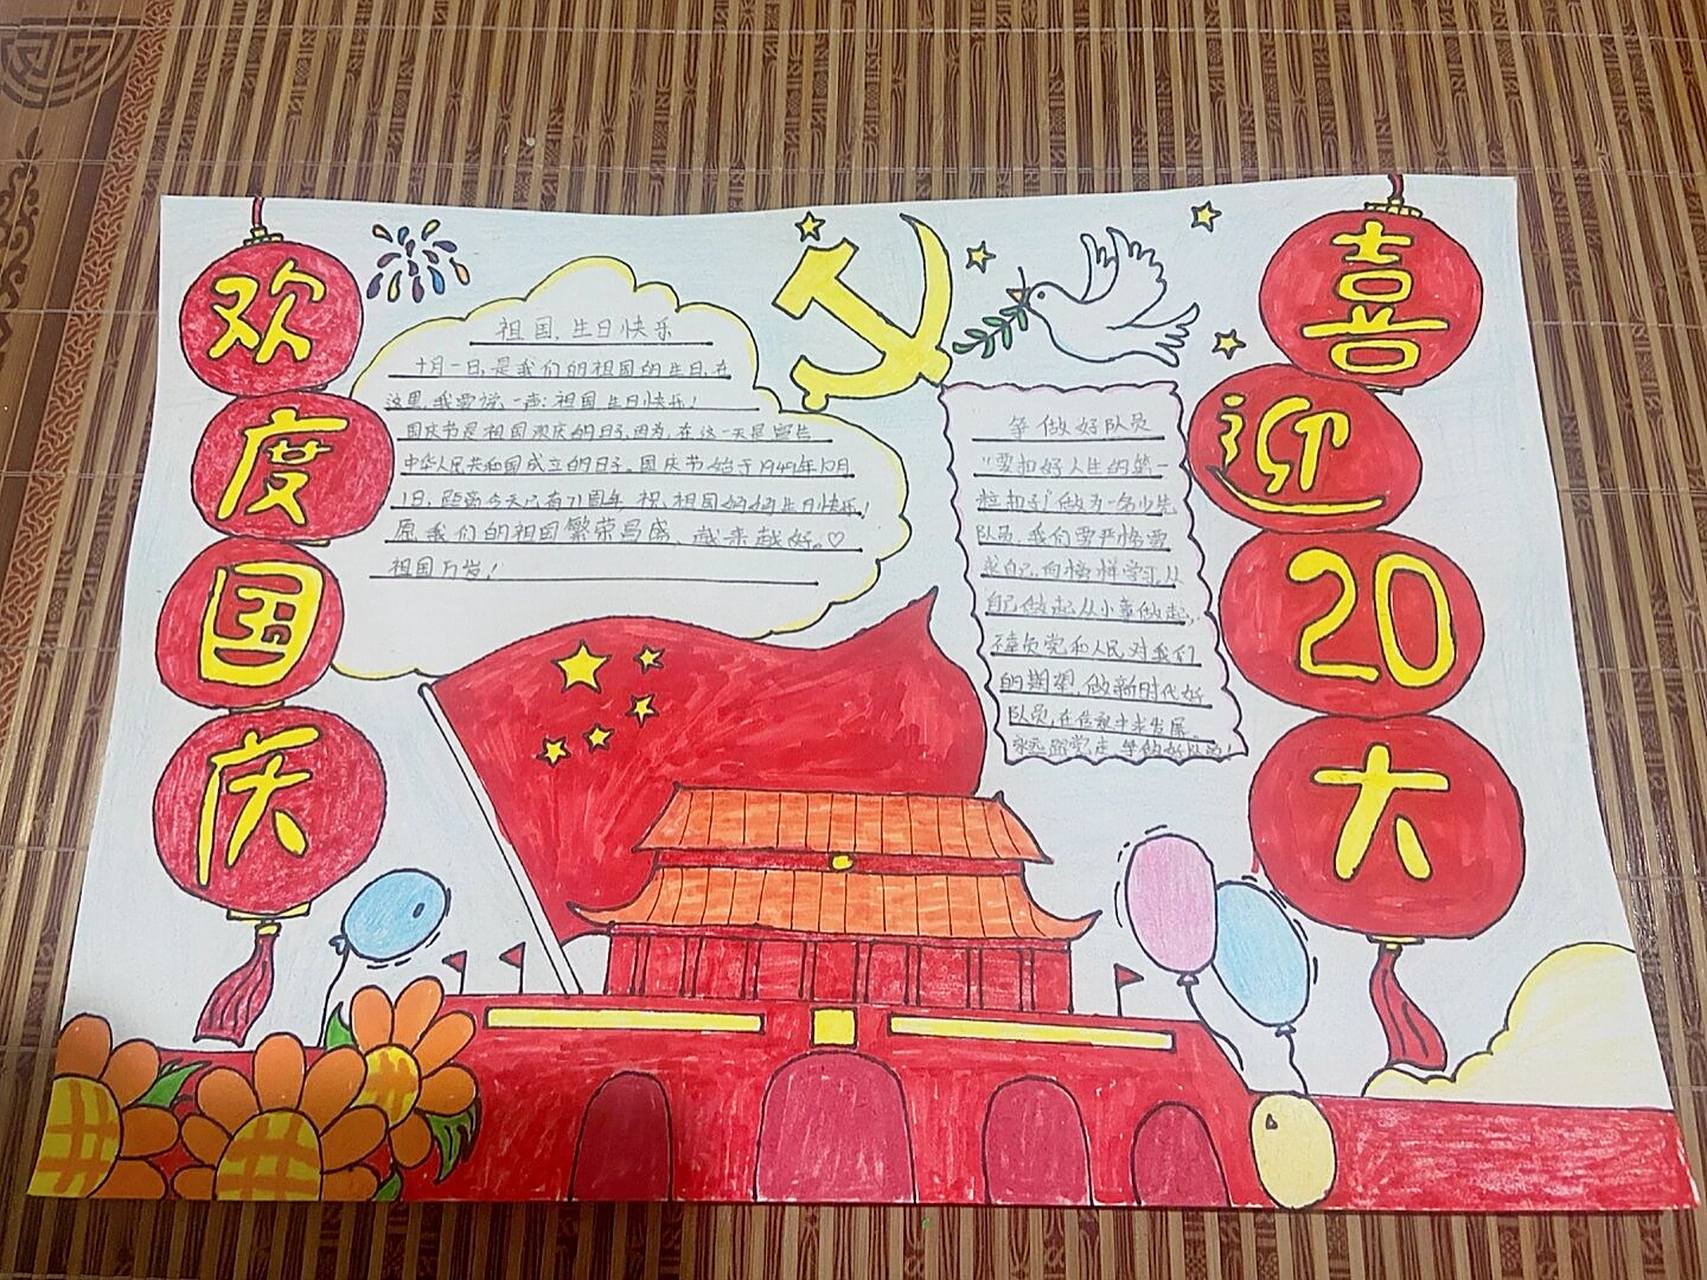 欢度国庆
喜迎20大
祖国,生日快乐
十月一日,是我们的祖国的生日,在
这里,我要说一声:祖国,生日快乐!
国庆节是祖国欢庆的日子,因为,在这一天是宣告
中华人民共和国成立的日子。国庆节始于1949年10月
1日,距离今天已有71周年,祝,祖国妈妈生日快乐!
愿我们的祖国繁荣昌盛、越来越好。♡
祖国万岁!
争做好队员
"要扣好人生的第一
粒扣子"做为一名少先
队员,我们要严格要
求自己,向榜样学习,从
自己做起,从小事做起,
不辜负党和人民,对我们
的期望,做新时代好
队员,在信念中求发展。
永远跟党走,争做好队员!